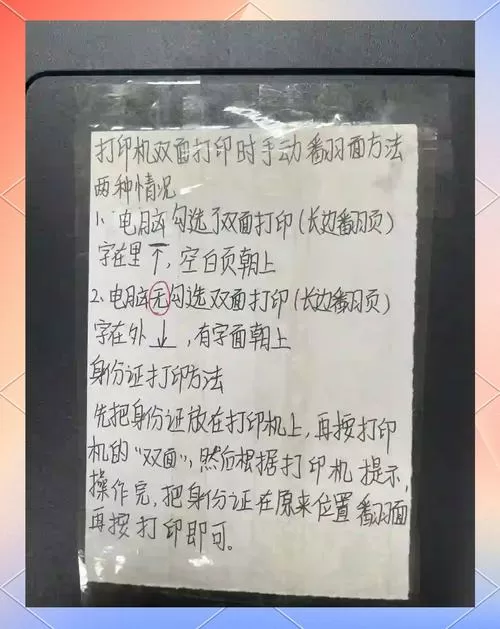 打印机双面打印时手动翻面方法
两种情况
1、电脑勾选了双面打印(长边翻页)
字在里↑,空白页朝上
2、电脑无勾选双面打印(长边翻页)
字在外↓,有字面朝上
身份证打印方法
先把身份证放在打印机上,再按打印
机的“双面”,然后根据打印机提示,
操作完,把身份证在原来位置翻面
再按打印即可。